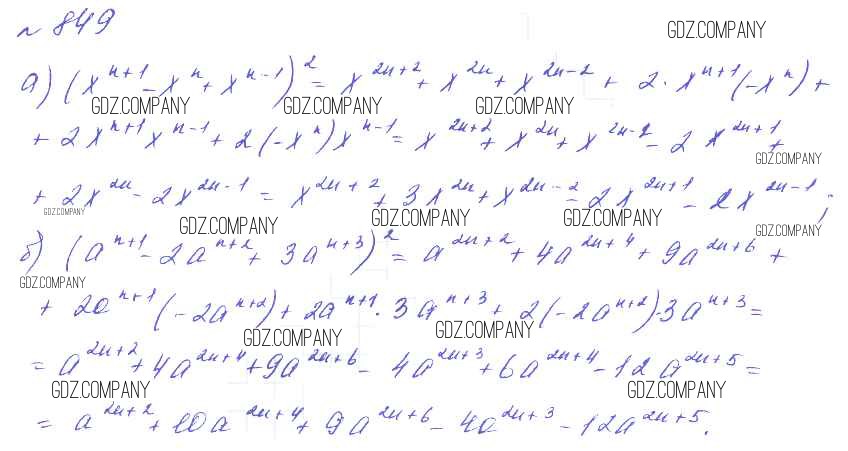 № 849
GDZ.COMPANY
а) (xⁿ⁺¹ - xⁿ + xⁿ⁻¹)² = x²ⁿ⁺² + x²ⁿ + x²ⁿ⁻² + 2·xⁿ⁺¹(-xⁿ) +
GDZ.COMPANY GDZ.COMPANY GDZ.COMPANY
+ 2xⁿ⁺¹xⁿ⁻¹ + 2(-xⁿ)xⁿ⁻¹ = x²ⁿ⁺² + x²ⁿ + x²ⁿ⁻² - 2x²ⁿ⁺¹ +
GDZ.COMPANY
+ 2x²ⁿ - 2x²ⁿ⁻¹ = x²ⁿ⁺² + 3x²ⁿ + x²ⁿ⁻² - 2x²ⁿ⁺¹ - 2x²ⁿ⁻¹;
GDZ.COMPANY GDZ.COMPANY GDZ.COMPANY GDZ.COMPANY GDZ.COMPANY
б) (aⁿ⁺¹ - 2aⁿ⁺² + 3aⁿ⁺³)² = a²ⁿ⁺² + 4a²ⁿ⁺⁴ + 9a²ⁿ⁺⁶ +
GDZ.COMPANY
+ 2aⁿ⁺¹(-2aⁿ⁺²) + 2aⁿ⁺¹·3aⁿ⁺³ + 2(-2aⁿ⁺²)·3aⁿ⁺³ =
GDZ.COMPANY GDZ.COMPANY
= a²ⁿ⁺² + 4a²ⁿ⁺⁴ + 9a²ⁿ⁺⁶ - 4a²ⁿ⁺³ + 6a²ⁿ⁺⁴ - 12a²ⁿ⁺⁵ =
GDZ.COMPANY GDZ.COMPANY
= a²ⁿ⁺² + 10a²ⁿ⁺⁴ + 9a²ⁿ⁺⁶ - 4a²ⁿ⁺³ - 12a²ⁿ⁺⁵.